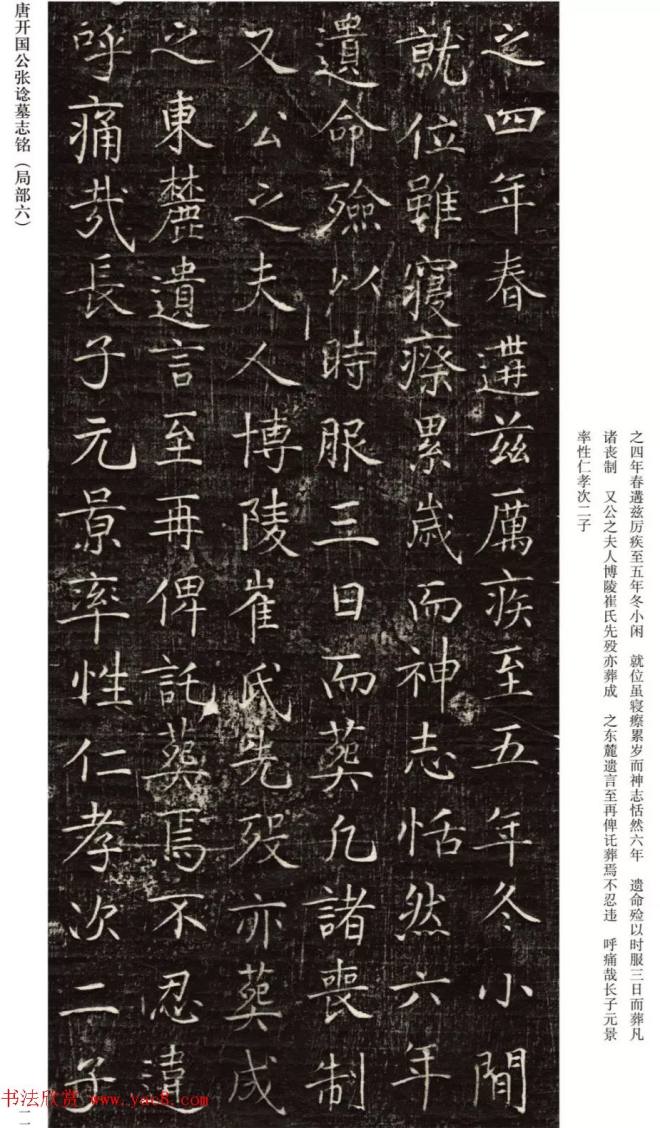 之四年春遘兹厉疾至五年冬小闲　就位虽寝瘵累岁而神志恬然六年　遗命殓以时服三日而葬凡
诸丧制　又公之夫人博陵崔氏先殁亦葬成　之东麓遗言至再俾讬葬焉不忍违　呼痛哉长子元景
率性仁孝次二子
之四年春遘茲厲疾至五年冬小閒
就位雖寢瘵累歲而神志恬然六年
遺命殮以時服三日而葬凡諸喪制
又公之夫人博陵崔氏先歿亦葬成
之東麓遺言至再俾託葬焉不忍違
呼痛哉長子元景率性仁孝次二子
唐开国公张谂墓志铭（局部六）
书法欣赏 www.yac8.com
一一